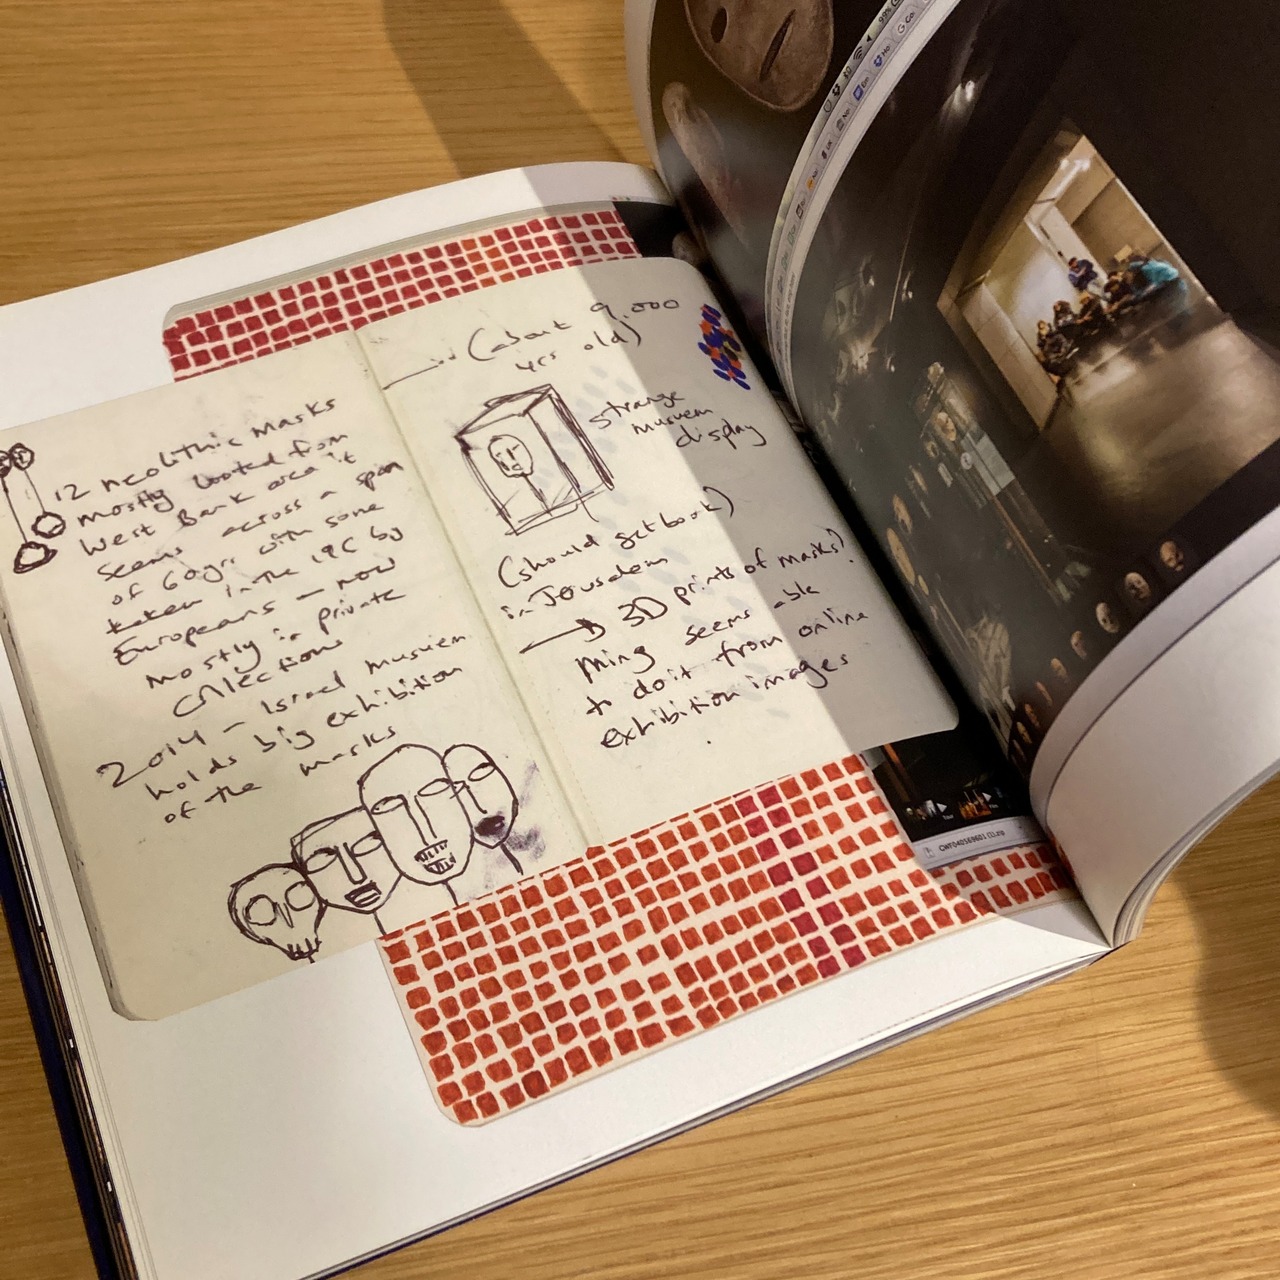 12 neolithic masks
mostly looted from
West Bank area it
seems across a span
of 60yrs with some
taken in the 19C by
Europeans – now
mostly in private
collections
2014 – Israel musuem
holds big exhibition
of the masks
(about 9,000
yrs old)
strange
musuem
display
(should get book)
in Jerusalem
→ 3D prints of masks?
Ming seems able
to do it from online
exhibition images
99%